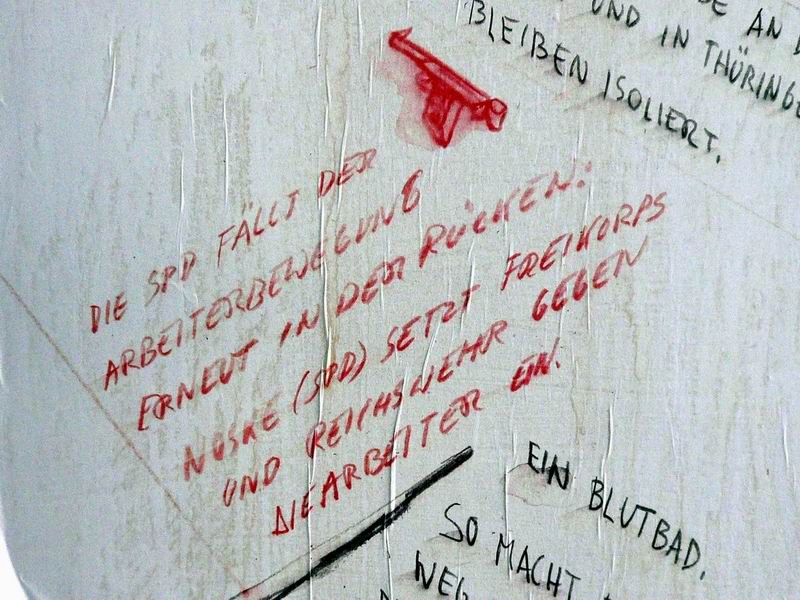 AN
UND IN THÜRINGE
BLEIBEN ISOLIERT.
DIE SPD FÄLLT DER
ARBEITERBEWEGUNG
ERNEUT IN DER RÜCKEN:
NOSKE (SPD) SETZT FREIKORPS
UND REICHSWEHR GEGEN
DIE ARBEITER EIN.
EIN BLUTBAD.
SO MACHT
WEG